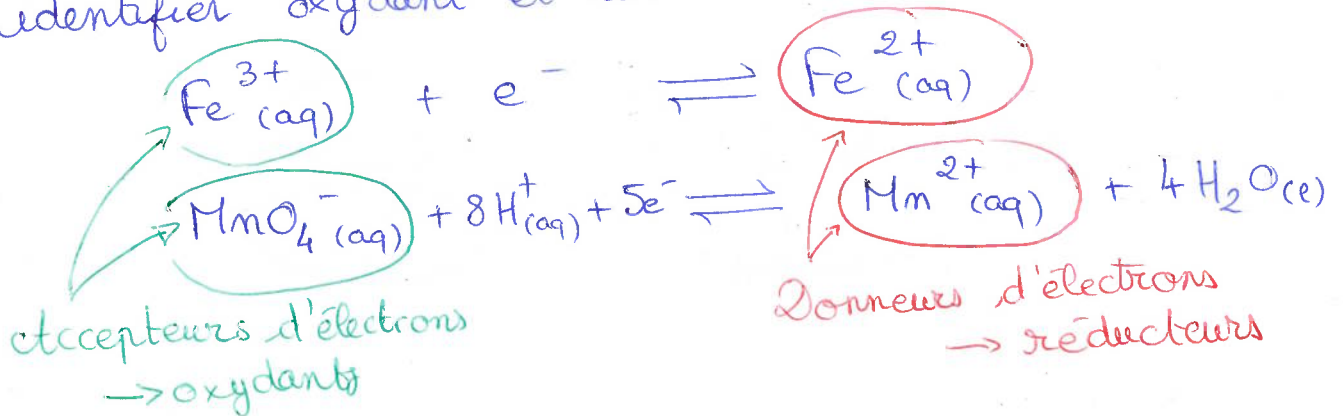 identifier oxydant et
Fe³⁺(aq) + e⁻ ⇌ Fe²⁺(aq)
MnO₄⁻(aq) + 8H⁺(aq) + 5e⁻ ⇌ Mn²⁺(aq) + 4H₂O(l)
Accepteurs d'électrons
→ oxydants
Donneurs d'électrons
→ réducteurs